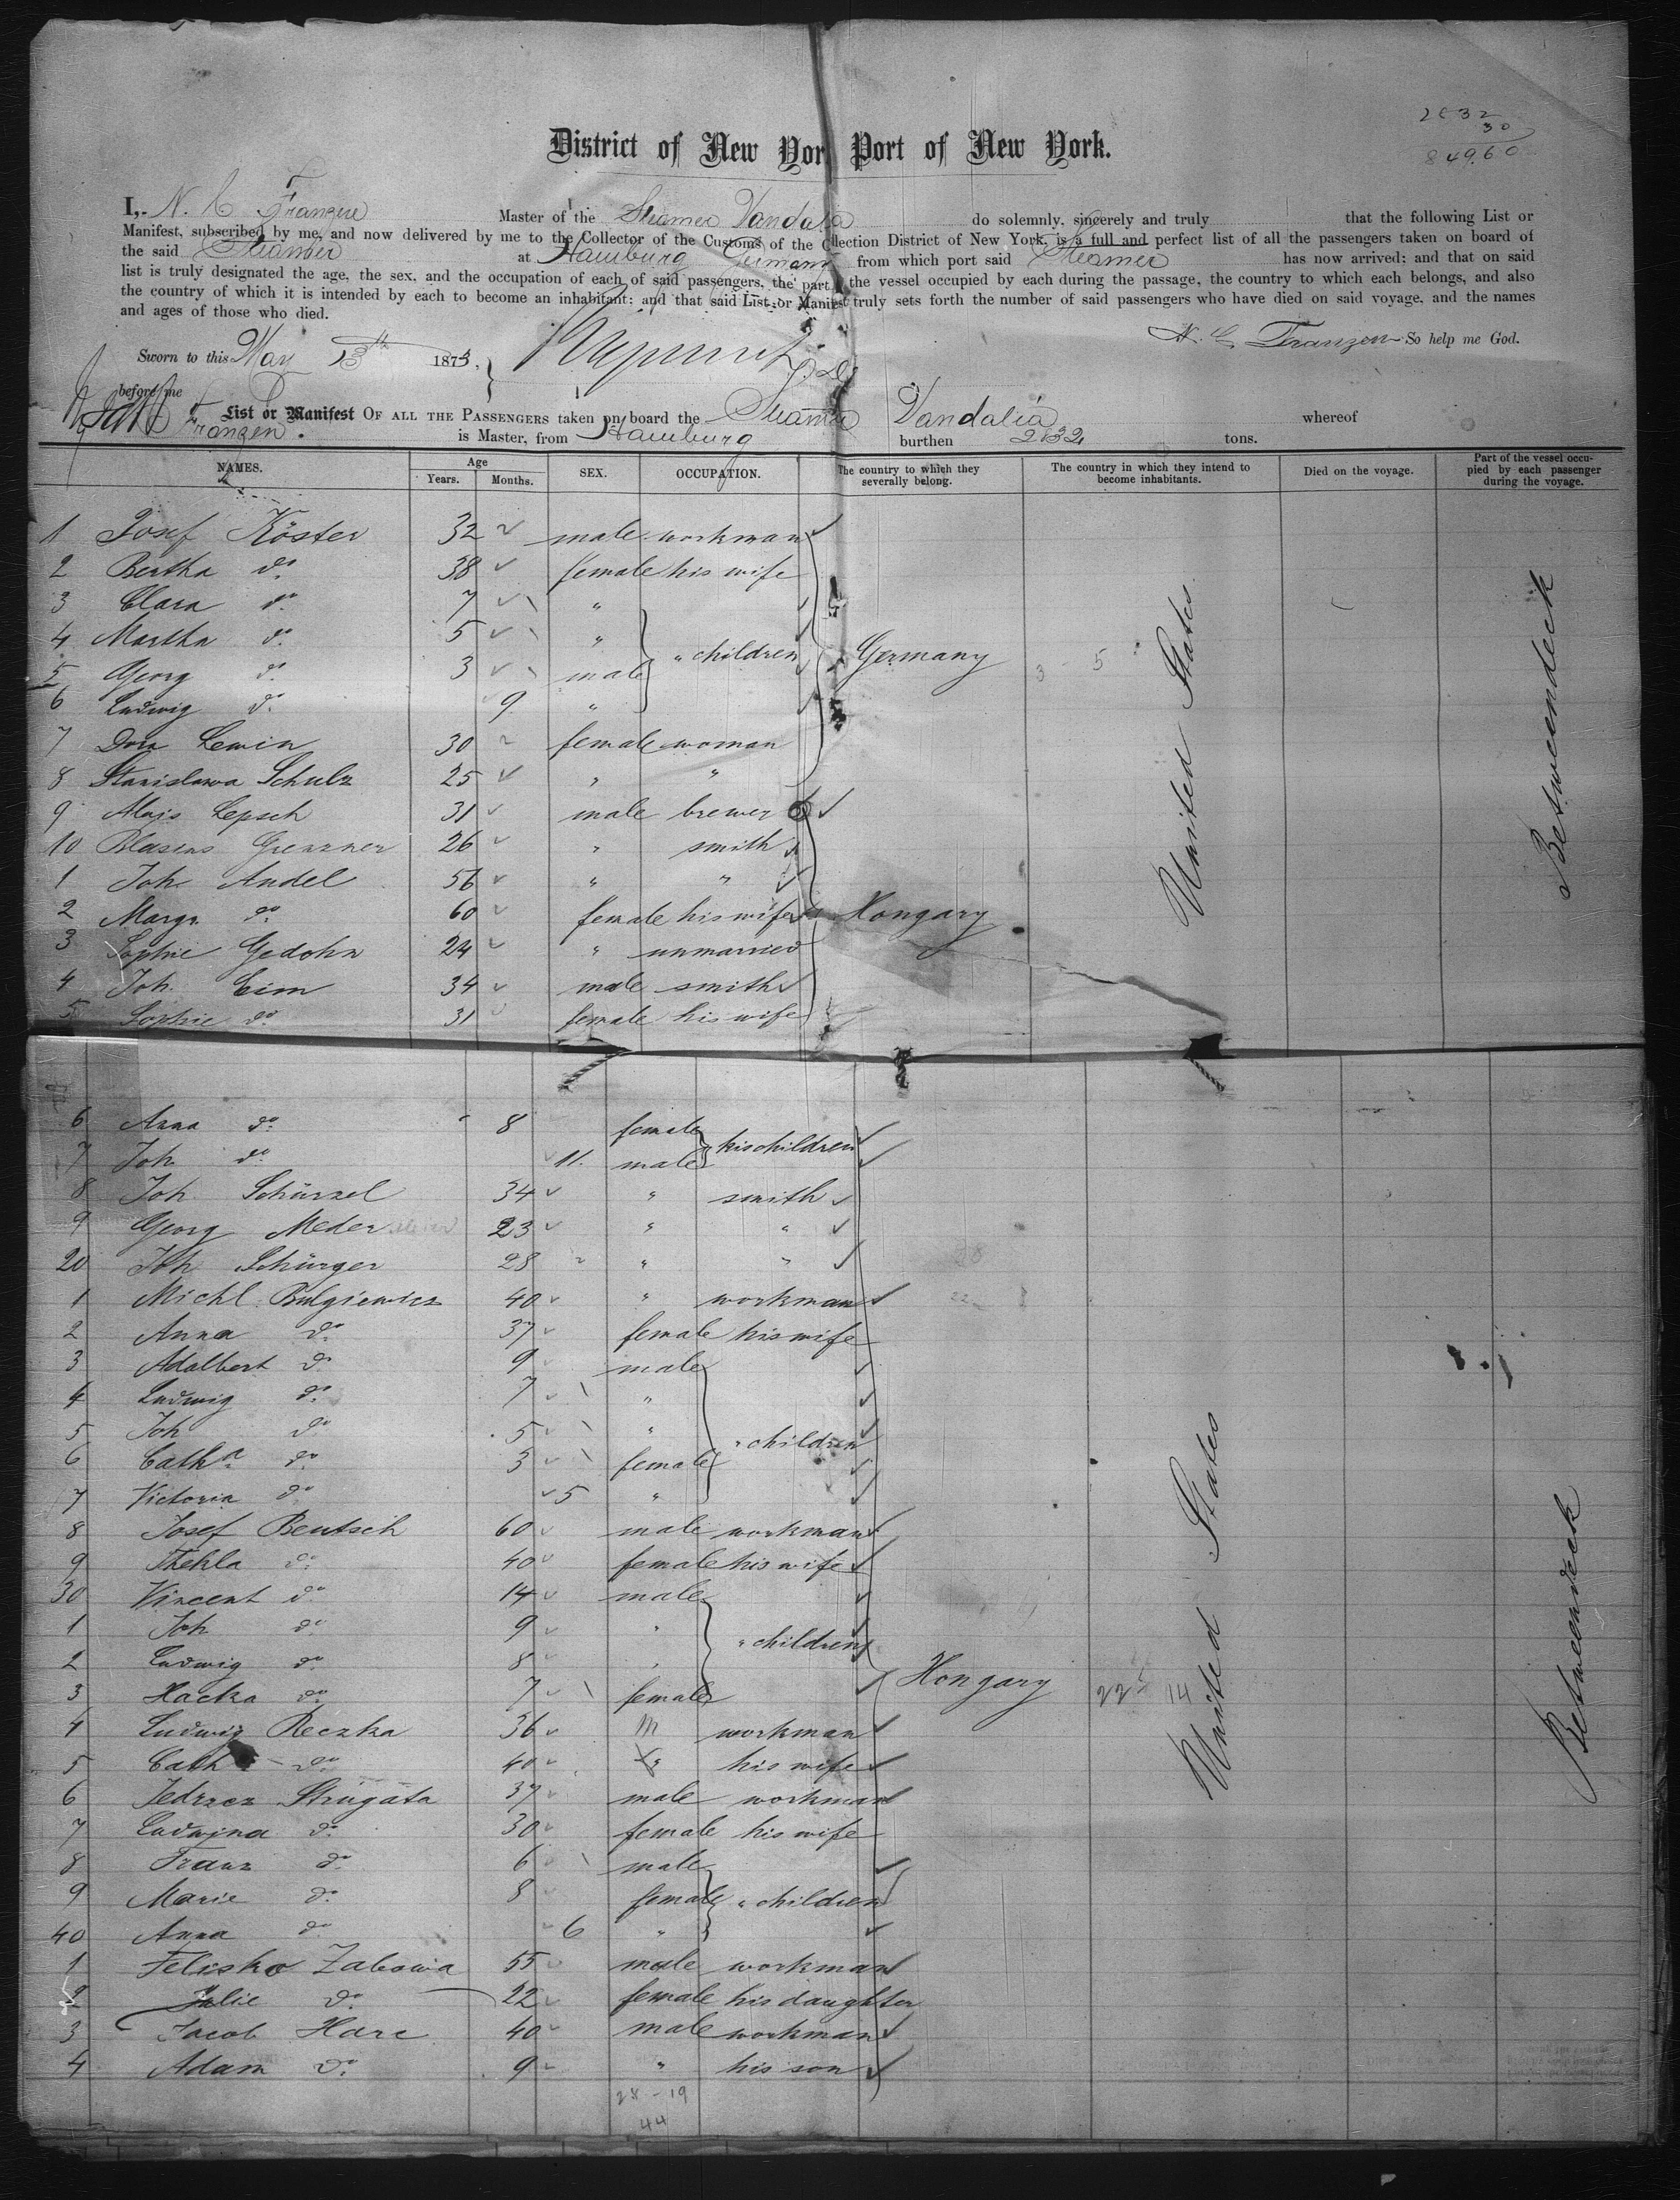 2832
30
849.60
District of New York Port of New York.
I, N. C. Franzen Master of the Steamer Vandalia do solemnly, sincerely and truly that the following List or
Manifest, subscribed by me, and now delivered by me to the Collector of the Customs of the Collection District of New York, is a full and perfect list of all the passengers taken on board of
the said Steamer at Hamburg Germany from which port said Steamer has now arrived: and that on said
list is truly designated the age, the sex, and the occupation of each of said passengers, the part of the vessel occupied by each during the passage, the country to which each belongs, and also
the country of which it is intended by each to become an inhabitant: and that said List or Manifest truly sets forth the number of said passengers who have died on said voyage, and the names
and ages of those who died.
N. C. Franzen So help me God.
Sworn to this May 13th 1873,
before me
List or Manifest OF ALL THE PASSENGERS taken on board the Steamer Vandalia whereof
Franzen. is Master, from Hamburg burthen 2832 tons.
NAMES. Age Years. Months. SEX. OCCUPATION. The country to which they severally belong. The country in which they intend to become inhabitants. Died on the voyage. Part of the vessel occupied by each passenger during the voyage.
1 Josef Köster 32 male workman
2 Bertha do 38 female his wife
3 Clara do 7 "
4 Martha do 5 " " children Germany 3 5
5 Georg do 3 male
6 Ludwig do 9 "
7 Dora Lewin 30 female woman
8 Stanislawa Schulz 25 " "
9 Alois Lepsch 31 male brewer
10 Blasens Grenzner 26 " smith
1 Joh Andel 56 " "
2 Margr. do 60 female his wife Hongary
3 Sophie Gedohn 24 " unmarried
4 Joh. Leim 34 male smith
5 Sophie do 31 female his wife
United States
Betweendeck
6 Anna do 8 female his children
7 Joh do 11. male
8 Joh Schürzel 34 " smith
9 Georg Meder 23 " "
20 Joh Schürger 28 " "
1 Michl. Bulgiewicz 40 " workman
2 Anna do 37 female his wife
3 Adalbert do 9 male
4 Ludwig do 7 "
5 Joh do 5 " " children
6 Catha do 3 female
7 Victoria do 5 "
8 Josef Bentsch 60 male workman
9 Thekla do 40 female his wife
30 Vincent do 14 male
1 Joh do 9 " " children
2 Ludwig do 8 "
3 Hacka do 7 female Hongary 22 14
4 Ludwig Reczka 36 m workman
5 Cath do 40 " his wife
6 Jedrzez Strugata 37 male workman
7 Ludwina do 30 female his wife
8 Franz do 6 male
9 Marie do 8 female " children
40 Anna do 6 "
1 Felisko Zabowia 55 male workman
2 Julie do 22 female his daughter
3 Jacob Harc 40 male workman
4 Adam do 9 " his son
United States
Betweendeck
28 - 19
44